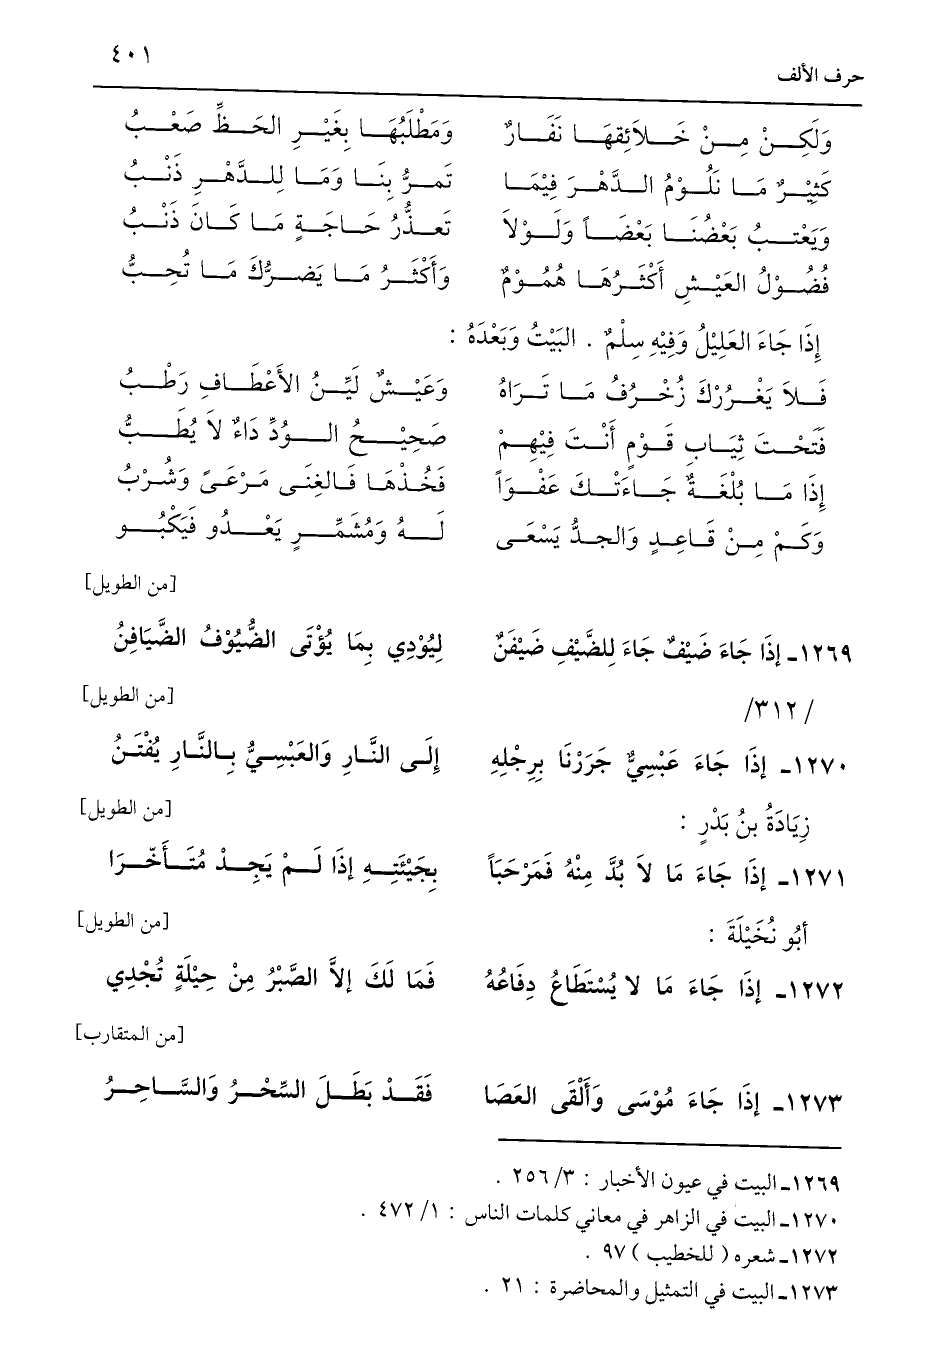 ٤٠١
حرف الألف
وَلَكِنْ مِنْ خَلاَئِقِهَا نَفَارٌ وَمَطْلَبُهَا بِغَيْرِ الحَظِّ صَعْبُ
كَثِيْرٌ مَا نَلُوْمُ الدَّهْرَ فِيْمَا تَمرُّ بِنَا وَمَا لِلدَّهْرِ ذَنْبُ
وَيَعْتبُ بَعْضُنَا بَعْضَاً وَلَوْلاَ تَعذُّرُ حَاجَةٍ مَا كَانَ ذَنْبُ
فُضُوْلُ العَيْشِ أَكْثَرُهَا هُمُوْمٌ وَأَكْثَرُ مَا يَضرُّكَ مَا تُحِبُّ
إِذَا جَاءَ العَلِيْلُ وَفِيْهِ سِلْمٌ . البَيْتُ وَبَعْدَهُ :
فَلاَ يَغْرُرْكَ زُخْرُفُ مَا تَرَاهُ وَعَيْشٌ لَيِّنُ الأَعْطَافِ رَطْبُ
فَتَحْتَ ثِيَابِ قَوْمٍ أَنْتَ فِيْهِمْ صَحِيْحُ الوُدِّ دَاءٌ لاَ يُطَبُّ
إِذَا مَا بُلْغَةٌ جَاءَتْكَ عَفْوَاً فَخُذْهَا فَالغِنَى مَرْعَىً وَشُرْبُ
وَكَمْ مِنْ قَاعِدٍ وَالجدُّ يَسْعَى لَهُ وَمُشَمِّرٍ يَعْدُو فَيَكْبُو
[من الطويل]
١٢٦٩ـ إِذَا جَاءَ ضَيْفٌ جَاءَ لِلضَّيْفِ ضَيْفَنٌ لِيُوْدِي بِمَا يُؤْتَى الضُّيُوْفُ الضَّيَافِنُ
[من الطويل]
/٣١٢/
١٢٧٠ـ إِذَا جَاءَ عَبْسِيٌّ جَرَرْنَا بِرِجْلِهِ إِلَى النَّارِ وَالعَبْسِيُّ بِالنَّارِ يُفْتَنُ
[من الطويل]
زِيَادَةُ بنُ بَدْرٍ :
١٢٧١ـ إِذَا جَاءَ مَا لاَ بُدَّ مِنْهُ فَمَرْحَبَاً بِجَيْئَتِهِ إِذَا لَمْ يَجِدْ مُتَأَخّرَا
[من الطويل]
أَبُو نُخَيْلَةَ :
١٢٧٢ـ إِذَا جَاءَ مَا لا يُسْتَطَاعُ دِفَاعُهُ فَمَا لَكَ إِلاَّ الصَّبْرُ مِنْ حِيْلَةٍ تُجْدِي
[من المتقارب]
١٢٧٣ـ إِذَا جَاءَ مُوْسَى وَأَلْقَى العَصَا فَقَدْ بَطَلَ السِّحْرُ وَالسَّاحِرُ
١٢٦٩ـ البيت في عيون الأخبار : ٣/ ٢٥٦ .
١٢٧٠ـ البيت في الزاهر في معاني كلمات الناس : ١/ ٤٧٢ .
١٢٧٢ـ شعره ( للخطيب ) ٩٧ .
١٢٧٣ـ البيت في التمثيل والمحاضرة : ٢١ .